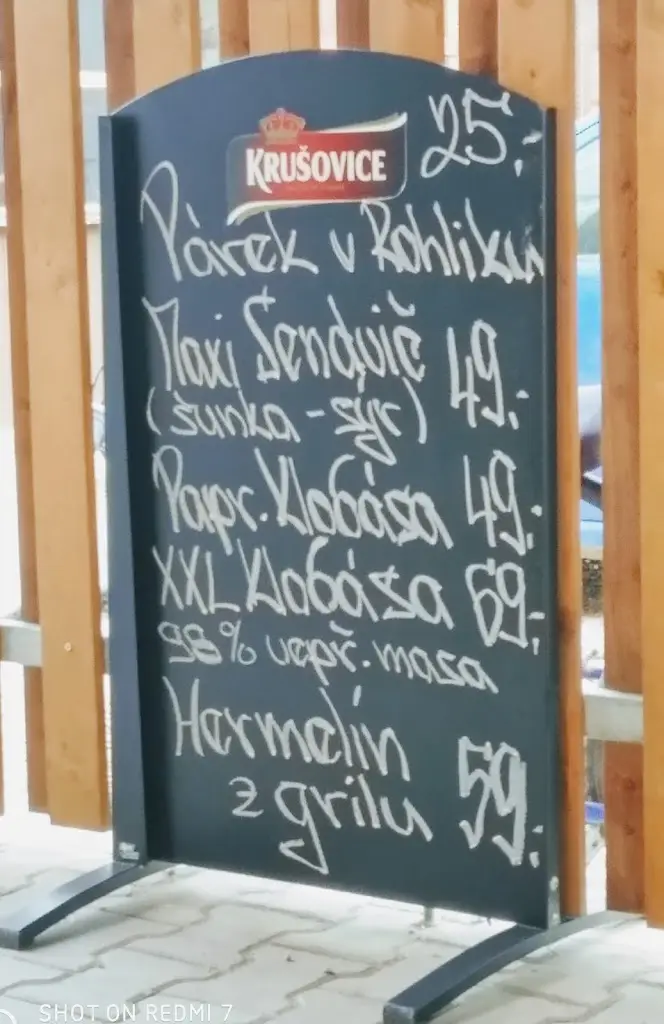 KRUŠOVICE
25,-
Párek v Rohlíku
Maxi Sendvič 49,-
(šunka - sýr)
Papr. Klobása 49,-
XXL Klobása 69,-
98% vepř. masa
Hermelín
z grilu 59,-
SHOT ON REDMI 7